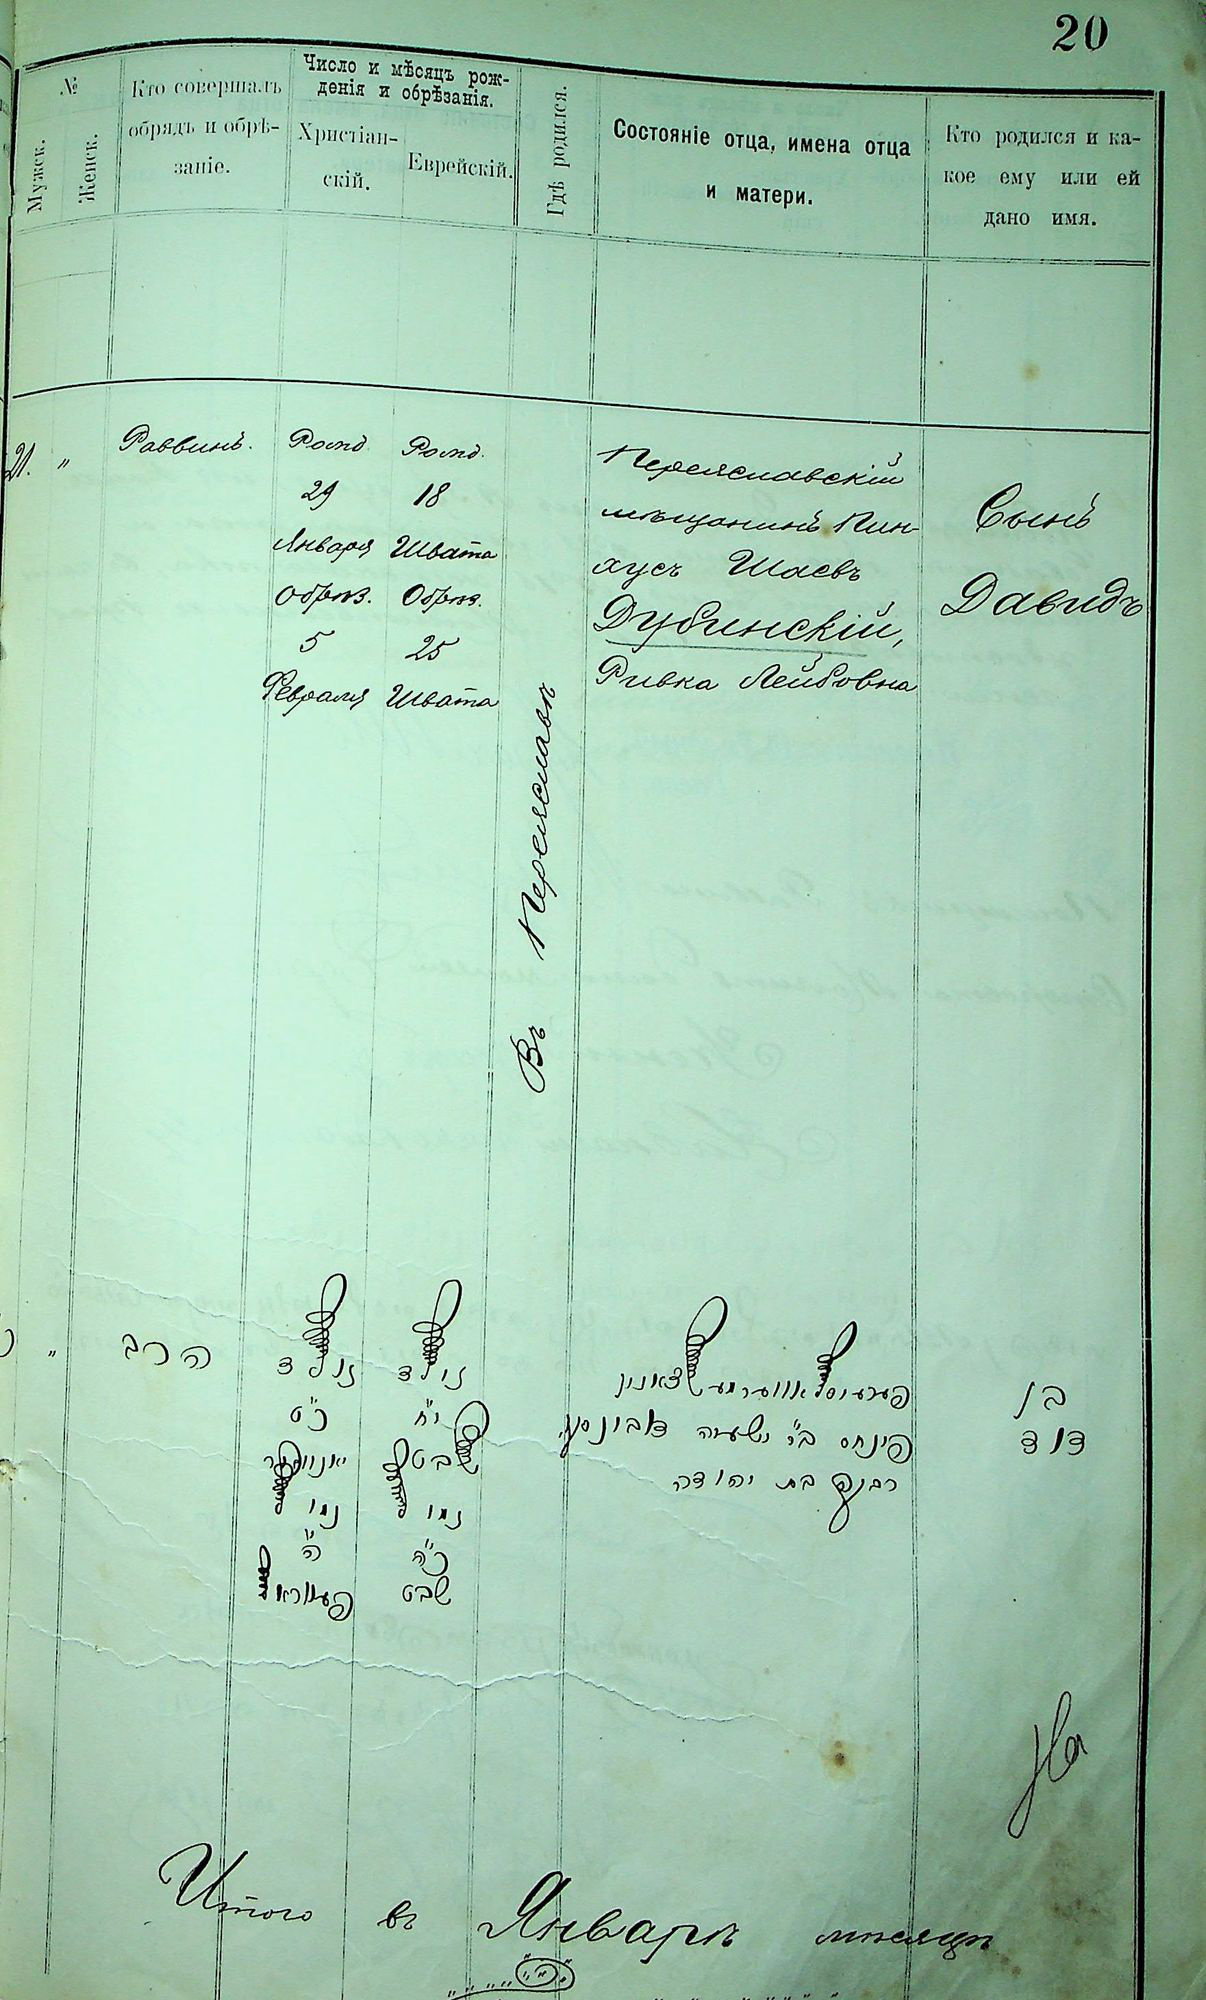 20
№
Мужск.
Женск.
Кто совершалъ
обрядъ и обрѣ-
заніе.
Число и мѣсяцъ рож-
денія и обрѣзанія.
Христіан-
скій.
Еврейскій.
Гдѣ родился.
Состояніе отца, имена отца
и матери.
Кто родился и ка-
кое ему или ей
дано имя.
21. "
Раввинъ.
Рожд.
29
Января
Обрѣз.
5
Февраля
Рожд.
18
Швата
Обрѣз.
25
Швата
Въ Переяславѣ
Переяславскій
мѣщанинъ Пин-
хусъ Шаевъ
Дубинскій,
Ривка Лейбовна
Сынъ
Давидъ
"
הרב
נולד
כ"ט
יאנוואר
נמו
ה"
פעווראל
נולד
י"ח
שבט
נמו
כ"ה
שבט
פינחס ב"ר ישעיה דובינסקי
רבקה בת יהודה
בן
דוד
На
Итого въ Январѣ мѣсяцѣ